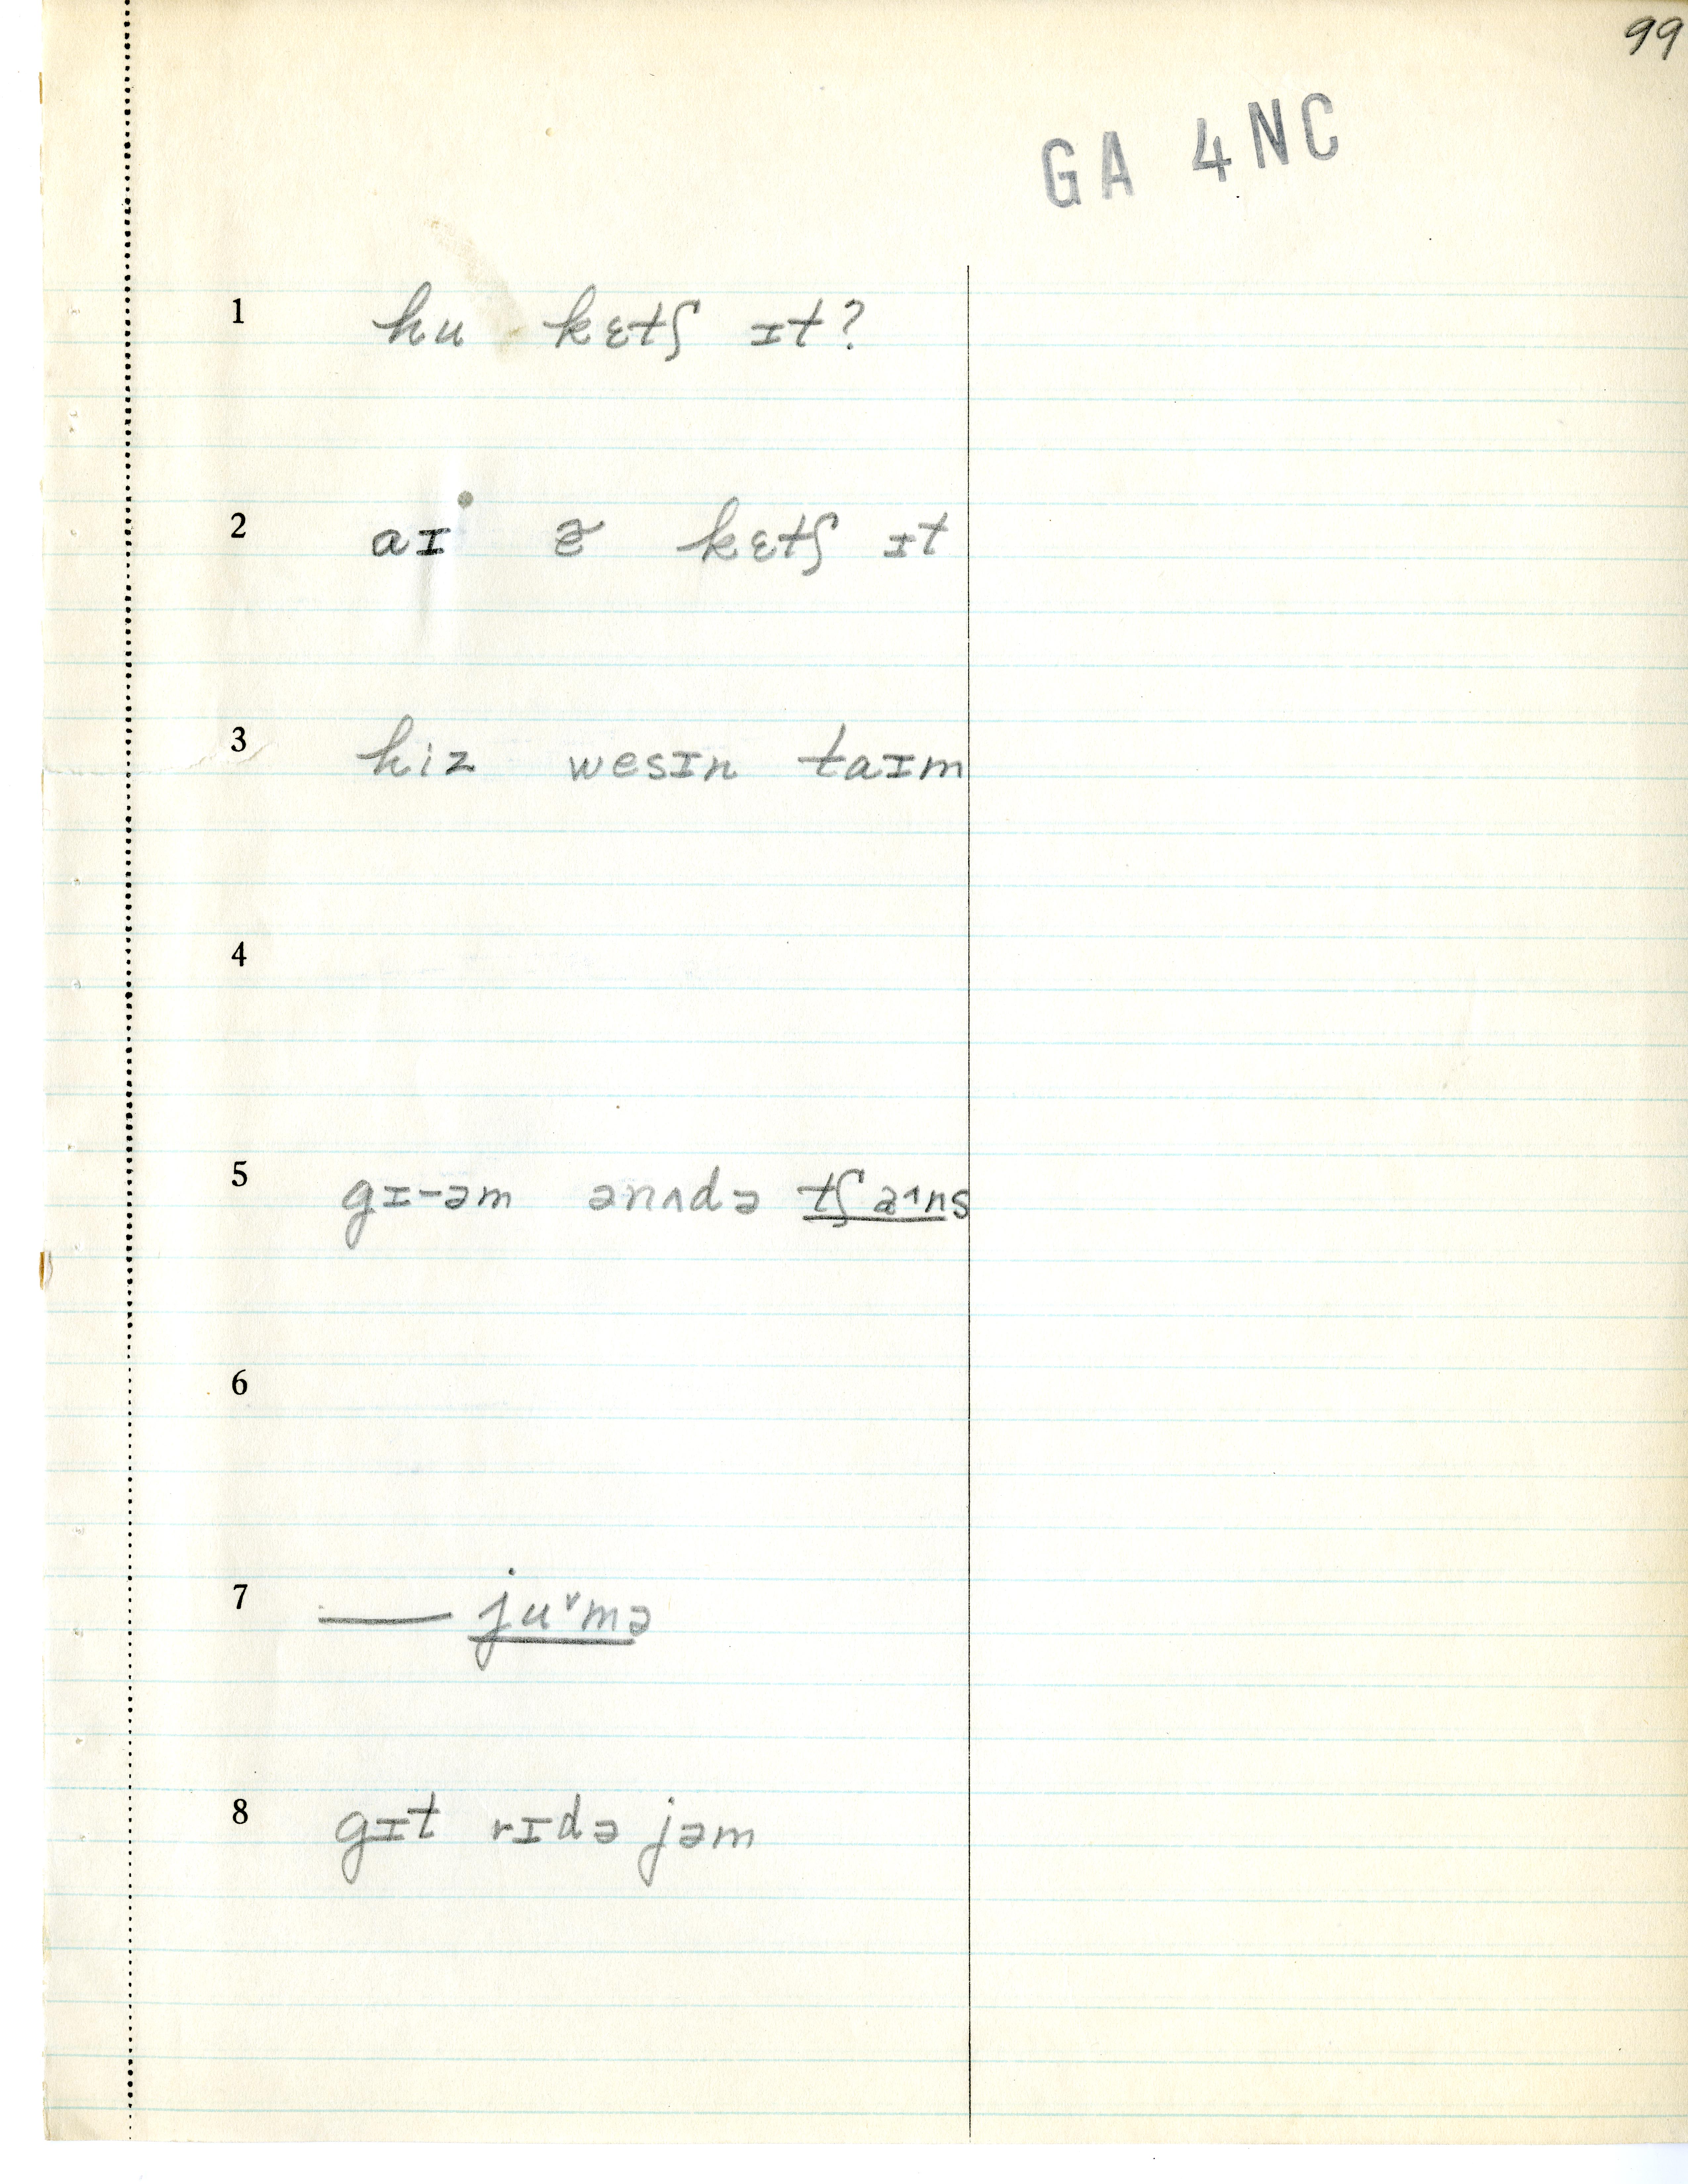 99
GA 4NC
1 hu kɛtʃ ɪt?
2 aɪ ə̃ kɛtʃ ɪt
3 hiz wesɪn taɪm
4
5 gɪ-əm ənʌdə tʃa˄ɪns
6
7 —— ju˅mə
8 gɪt rɪdə jəm